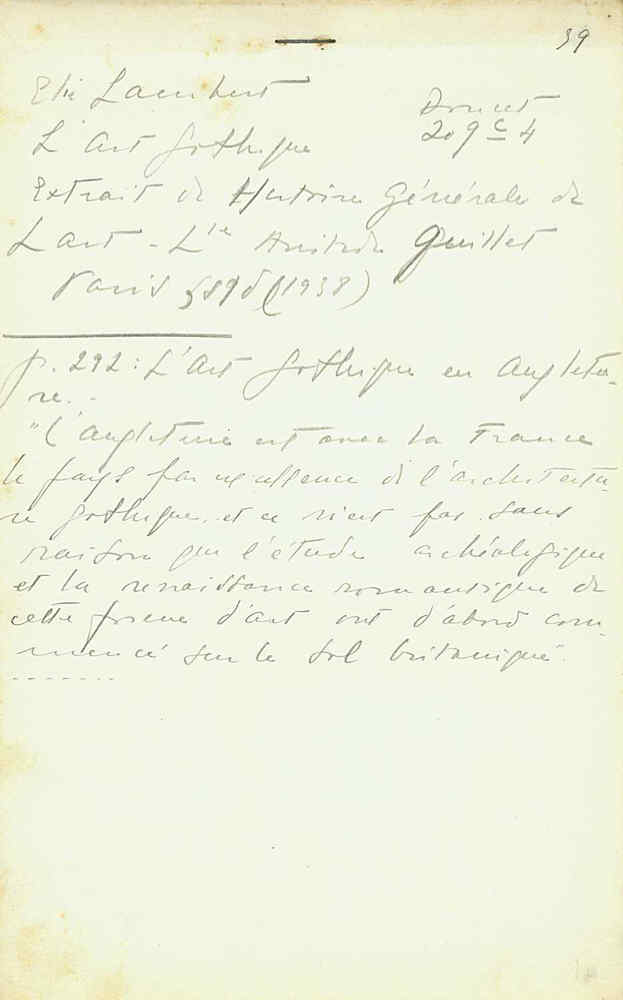 39
Elie Lambert
Doucet
209 c 4
L'Art Gothique
Extrait de Histoire Générale de
L'art - L ie Aristide Quillet
Paris (1938)
p. 292: L'Art Gothique en Angleter-
re. -
"L'angleterre est avec la France
le pays par excellence de l'architectu-
re gothique, et ce n'est pas sans
raison que l'étude archéologique
et la renaissance romantique de
cette forme d'art ont d'abord com-
mencé sur le sol britanique".
- - - - - - - -